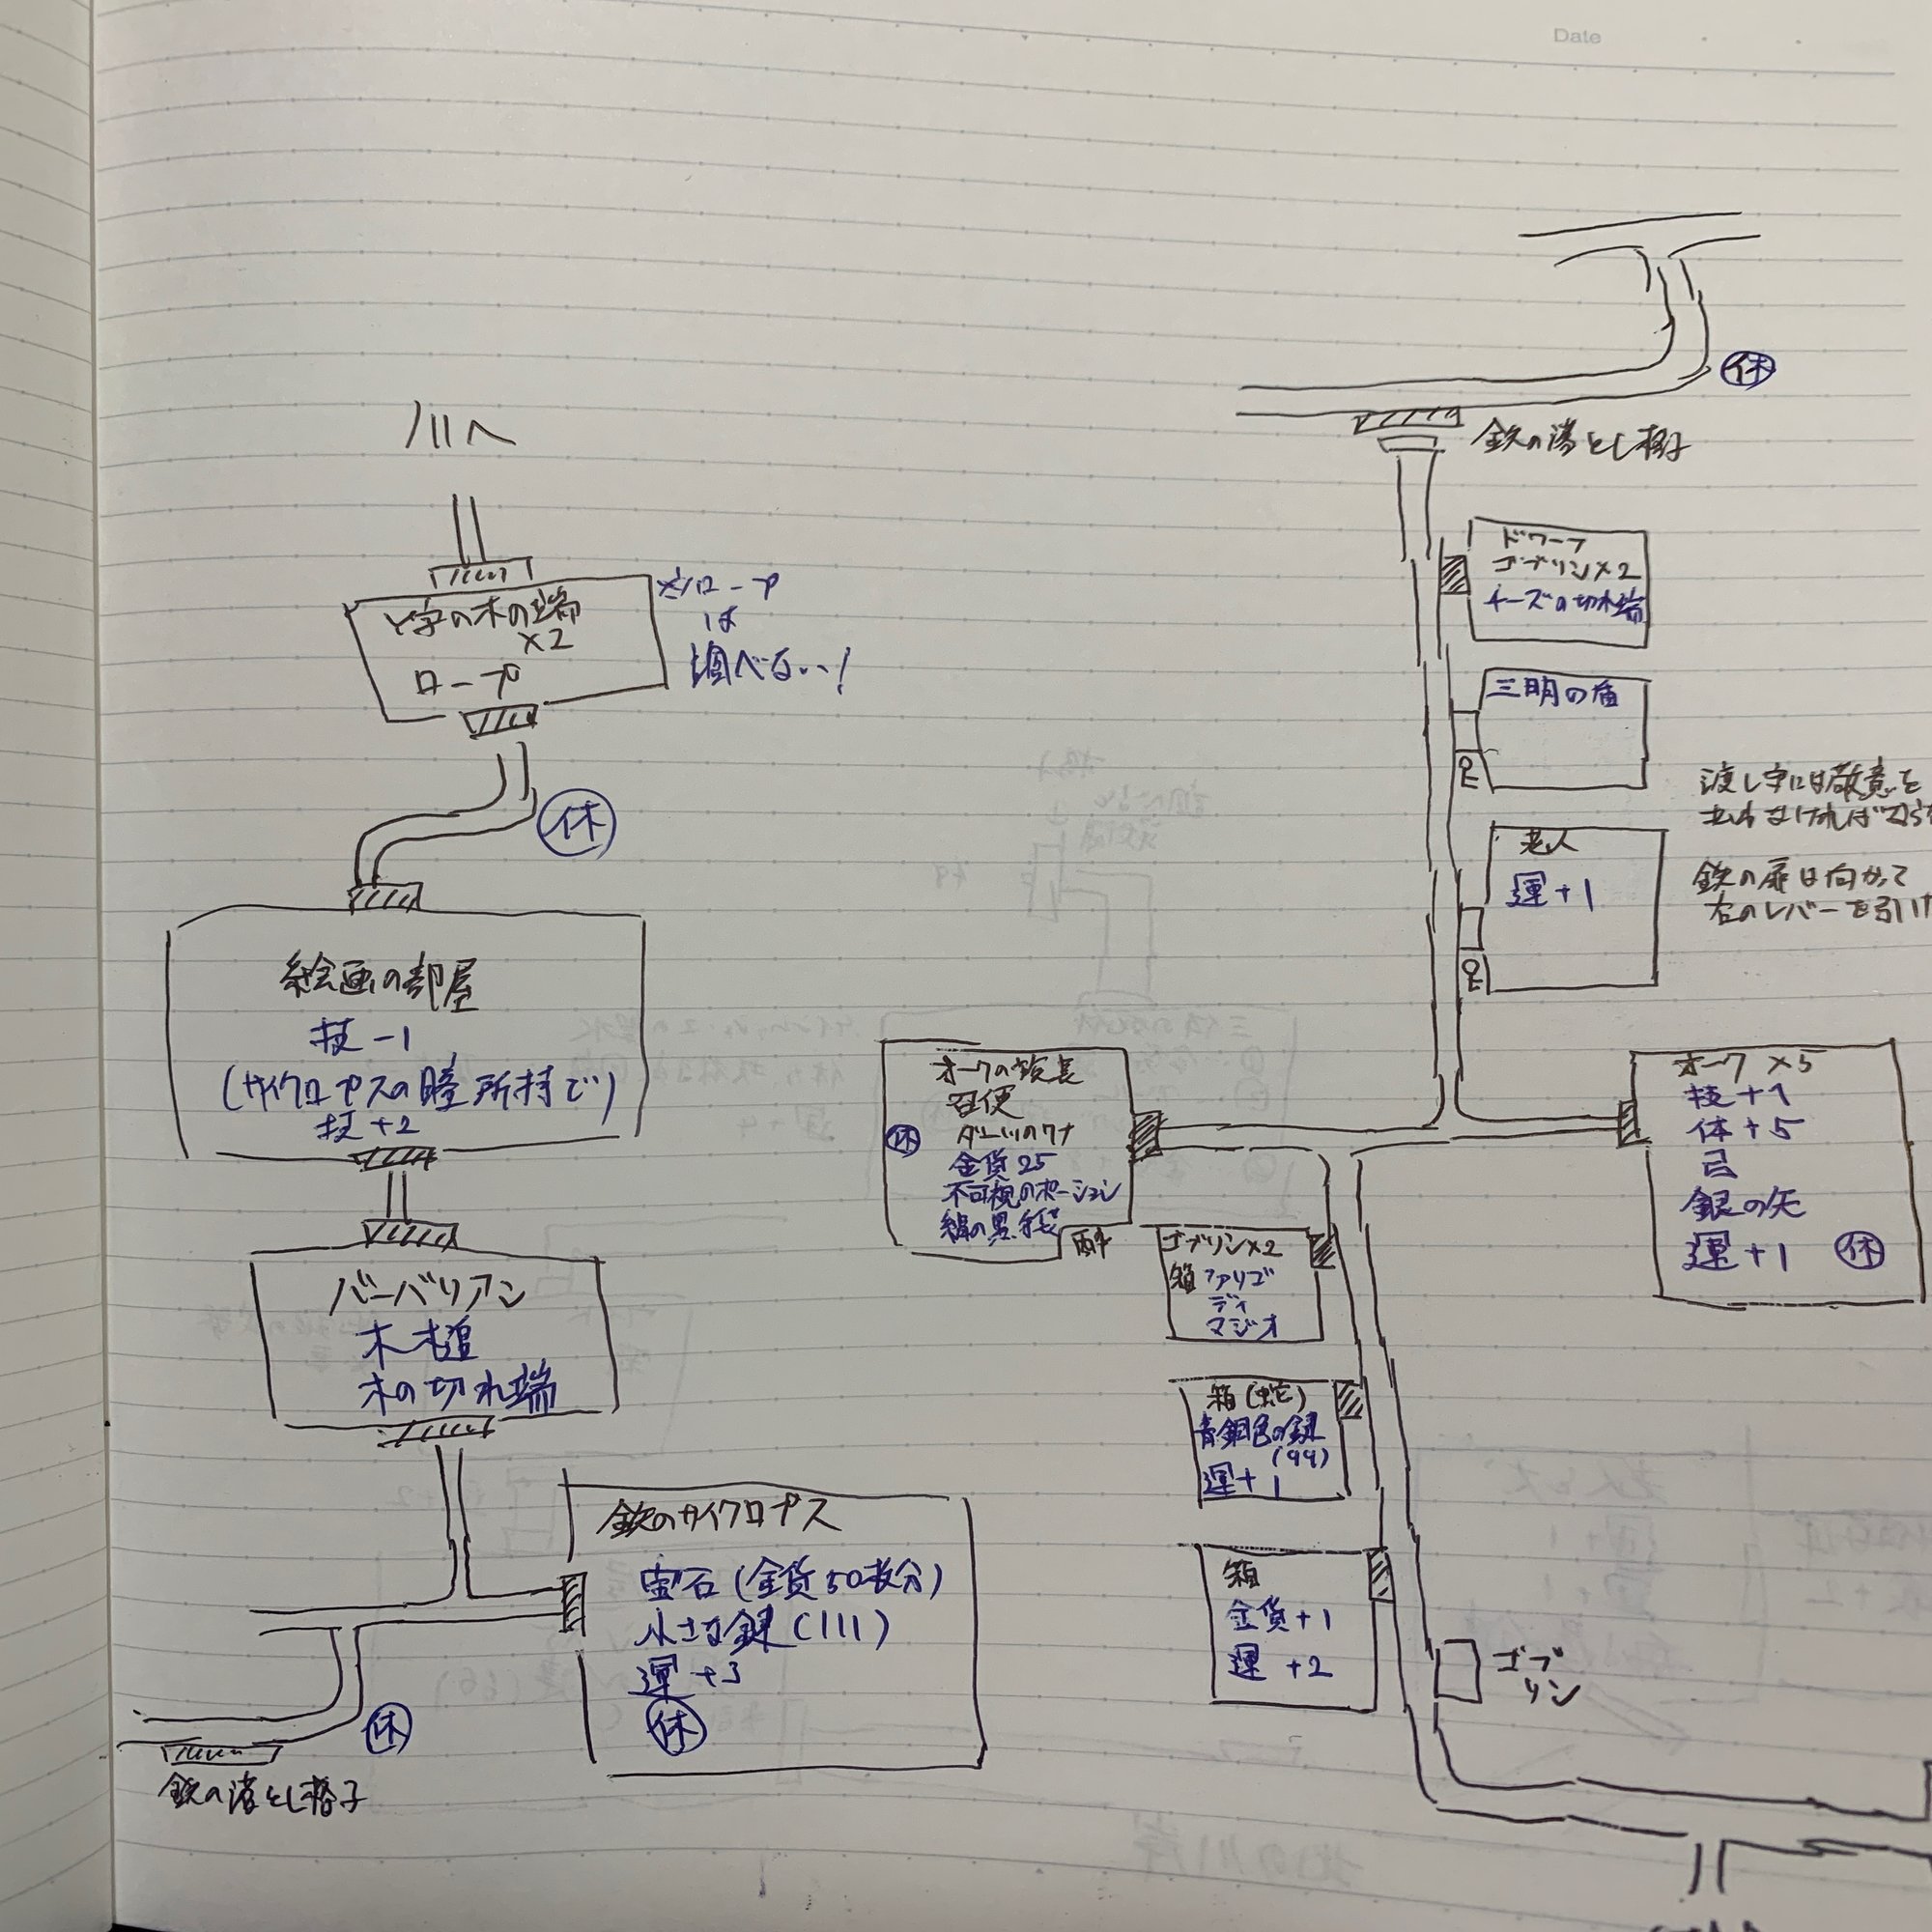 Date
川へ
Y字の木の端
×2
ロープ
※ロープ
は
調べない!
休
絵画の部屋
技-1
(サイクロプスの瞳所持で)
技+2
バーバリアン
木槌
木の切れ端
鉄のサイクロプス
宝石(金貨50枚分)
小さな鍵(111)
運+3
休
休
鉄の落とし格子
休
鉄の落とし格子
ドワーフ
ゴブリン×2
チーズの切れ端
三明の盾
老人
運+1
渡し守には敬意を
鉄の扉は向かって
右のレバーを引け
オークの
召使
ダーツのワナ
休
金貨25
不可視のポーション
オーク×5
技+1
体+5
弓
銀の矢
運+1
休
ゴブリン×2
箱 ファリゴ
ディ
マジオ
箱(蛇)
青銅色の鍵
(99)
運+1
箱
金貨+1
運+2
ゴブ
リン